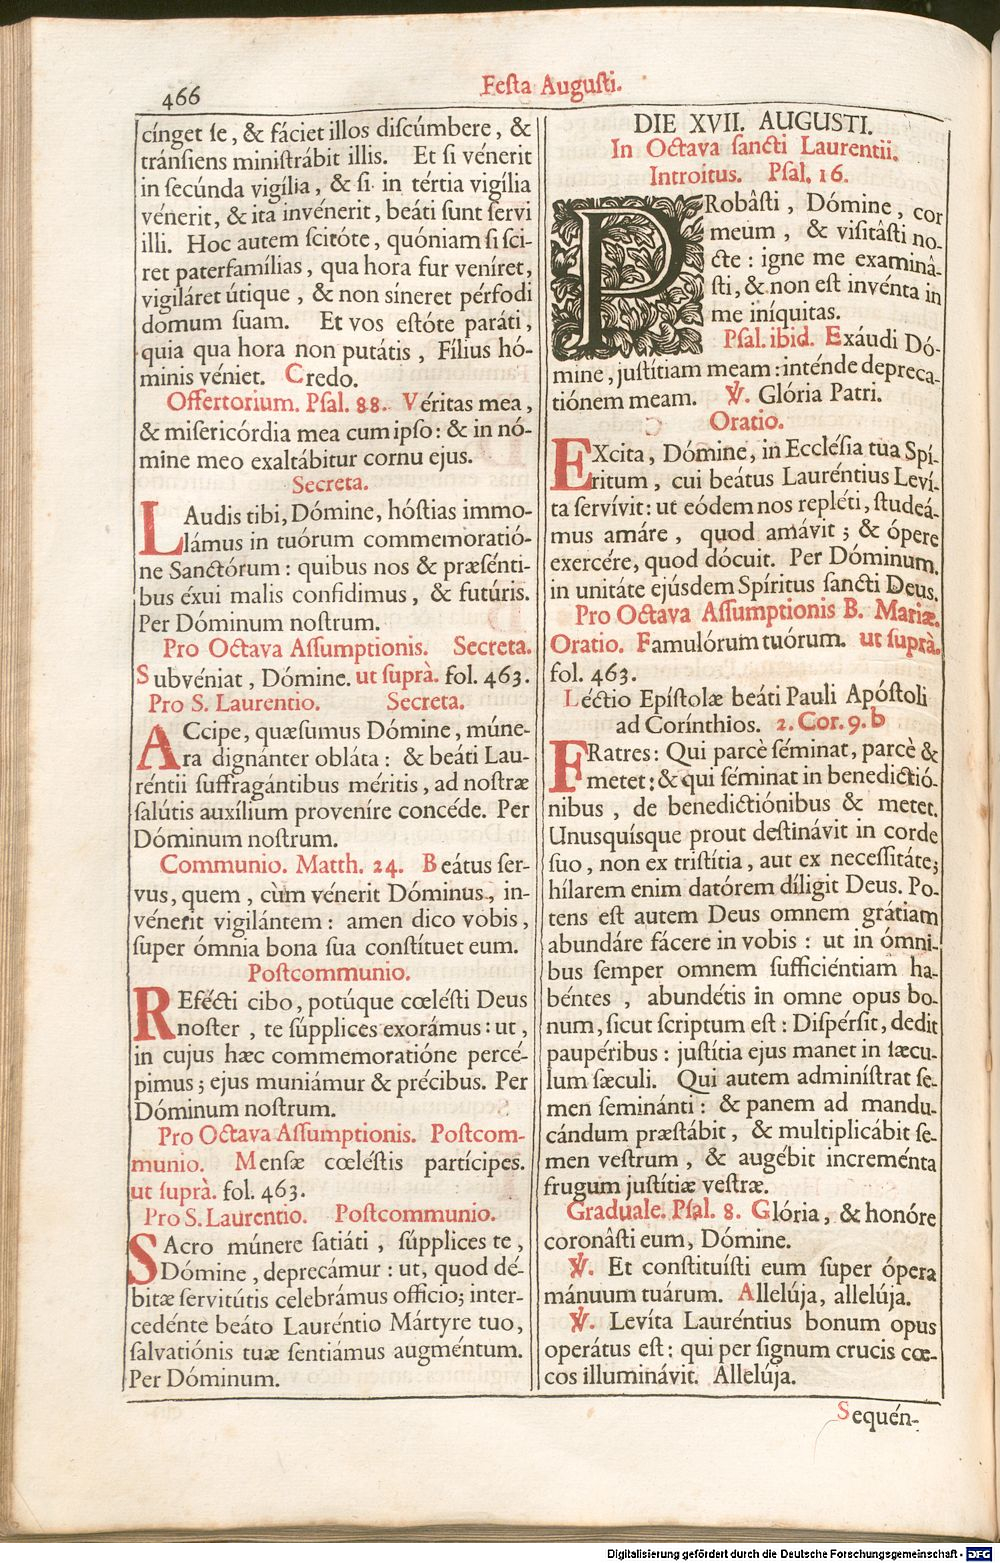 466
Festa Augusti.
cínget se, & fáciet illos discúmbere, &
tránsiens ministrábit illis. Et si vénerit
in secúnda vigília, & si in tértia vigília
vénerit, & ita invénerit, beáti sunt servi
illi. Hoc autem scitóte, quóniam si sci-
ret paterfamílias, qua hora fur veníret,
vigiláret útique, & non síneret pérfodi
domum suam. Et vos estóte paráti,
quia qua hora non putátis, Fílius hó-
minis véniet. Credo.
Offertorium. Psal. 88. Véritas mea,
& misericórdia mea cum ipso: & in nó-
mine meo exaltábitur cornu ejus.
Secreta.
LAudis tibi, Dómine, hóstias immo-
lámus in tuórum commemoratió-
ne Sanctórum: quibus nos & præsénti-
bus éxui malis confidimus, & futúris.
Per Dóminum nostrum.
Pro Octava Assumptionis. Secreta.
Subvéniat, Dómine. ut suprà. fol. 463.
Pro S. Laurentio. Secreta.
ACcipe, quæsumus Dómine, múne-
ra dignánter obláta: & beáti Lau-
réntii suffragántibus méritis, ad nostræ
salútis auxílium proveníre concéde. Per
Dóminum nostrum.
Communio. Matth. 24. Beátus ser-
vus, quem, cùm vénerit Dóminus, in-
vénerit vigilántem: amen dico vobis,
super ómnia bona sua constítuet eum.
Postcommunio.
REfécti cibo, potúque cœlésti Deus
noster, te súpplices exorámus: ut,
in cujus hæc commemoratióne percé-
pimus; ejus muniámur & précibus. Per
Dóminum nostrum.
Pro Octava Assumptionis. Postcom-
munio. Mensæ cœléstis partícipes.
ut suprà. fol. 463.
Pro S. Laurentio. Postcommunio.
SAcro múnere satiáti, súpplices te,
Dómine, deprecámur: ut, quod dé-
bitæ servitútis celebrámus officio; inter-
cedénte beáto Lauréntio Mártyre tuo,
salvatiónis tuæ sentiámus augméntum.
Per Dóminum.
DIE XVII. AUGUSTI.
In Octava sancti Laurentii.
Introitus. Psal. 16.
PRobâsti, Dómine, cor
meum, & visitâsti no-
cte: igne me examinâ-
sti, & non est invénta in
me iníquitas.
Psal. ibid. Exáudi Dó-
mine, justítiam meam: inténde depreca-
tiónem meam. ℣. Glória Patri.
Oratio.
EXcita, Dómine, in Ecclésia tua Spí-
ritum, cui beátus Lauréntius Leví-
ta servívit: ut eódem nos repléti, studeá-
mus amáre, quod amávit; & ópere
exercére, quod dócuit. Per Dóminum.
in unitáte ejúsdem Spíritus sancti Deus.
Pro Octava Assumptionis B. Mariæ.
Oratio. Famulórum tuórum. ut suprà.
fol. 463.
Léctio Epístolæ beáti Pauli Apóstoli
ad Corínthios. 2. Cor. 9. b
FRatres: Qui parcè séminat, parcè &
metet: & qui séminat in benedictió-
nibus, de benedictiónibus & metet.
Unusquísque prout destinávit in corde
suo, non ex tristítia, aut ex necessitáte;
hílarem enim datórem díligit Deus. Po-
tens est autem Deus omnem grátiam
abundáre fácere in vobis: ut in ómni-
bus semper omnem sufficiéntiam ha-
béntes, abundétis in omne opus bo-
num, sicut scriptum est: Dispérsit, dedit
paupéribus: justítia ejus manet in sæcu-
lum sæculi. Qui autem adminístrat se-
men seminánti: & panem ad mandu-
cándum præstábit, & multiplicábit se-
men vestrum, & augébit increménta
frugum justítiæ vestræ.
Graduale. Psal. 8. Glória, & honóre
coronâsti eum, Dómine.
℣. Et constituísti eum super ópera
mánuum tuárum. Allelúja, allelúja.
℣. Levíta Lauréntius bonum opus
operátus est: qui per signum crucis cœ-
cos illuminávit. Allelúja.
Sequén-
Digitalisierung gefördert durch die Deutsche Forschungsgemeinschaft - DFG